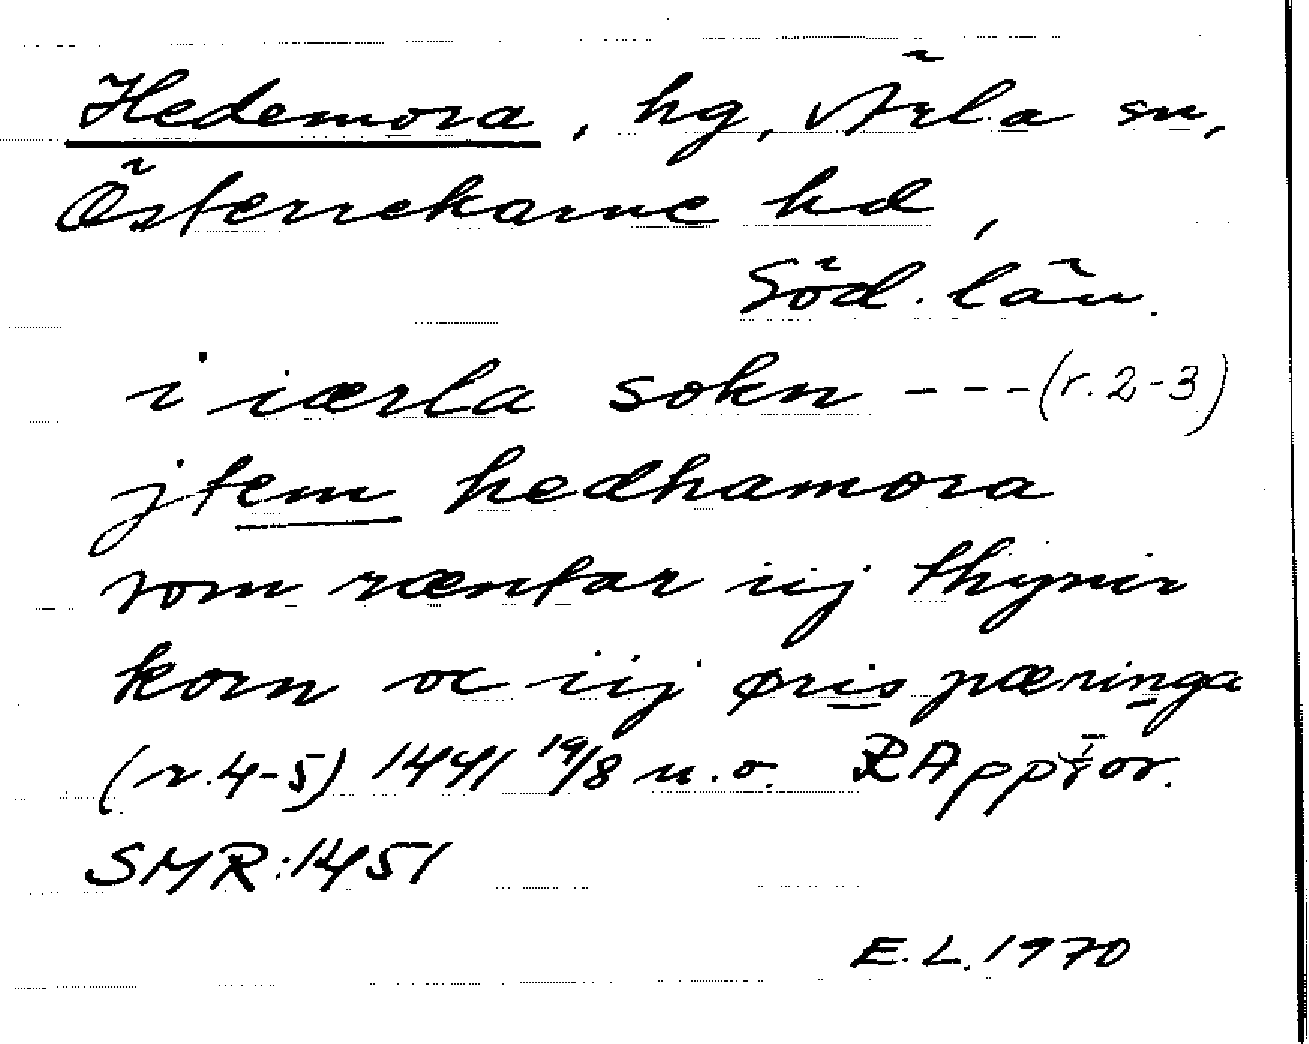 Hedemora, hg, Ärla sn,
Österrekarne hd,
Söd. län.
i iærla sokn ---(r. 2-3)
jtem hedhamora
som ræntar iij thynir
korn oc iij øris pæninga
(r. 4-5) 1441 19/8 u.o. RApp för.
SMR: 1451
E. L. 1970